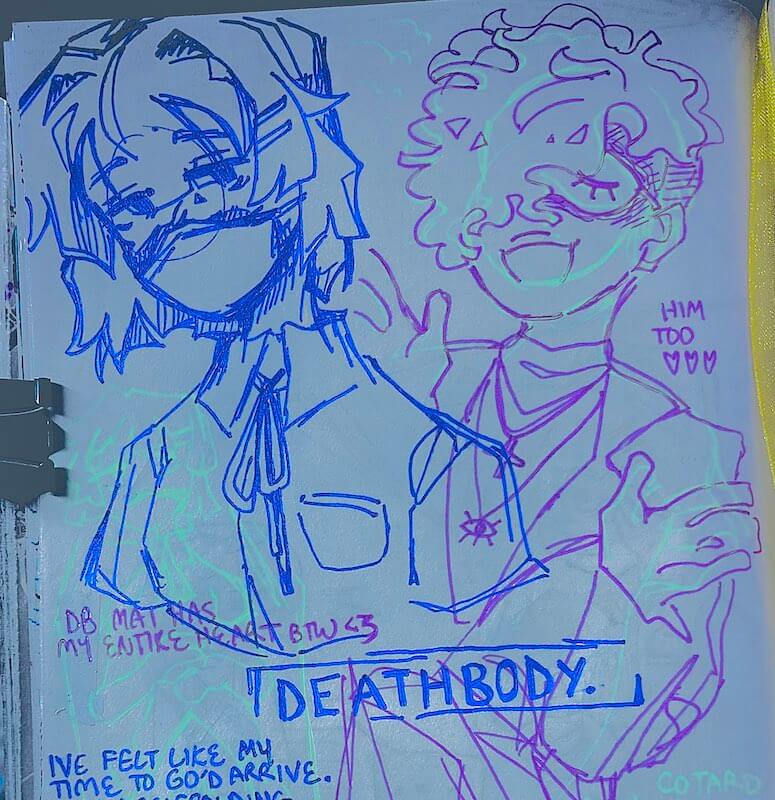 HIM
TOO
♡♡♡
DB MAT HAS
MY ENTIRE HEART BTW <3
DEATHBODY.
IVE FELT LIKE MY
TIME TO GO'D ARRIVE.
COTARD